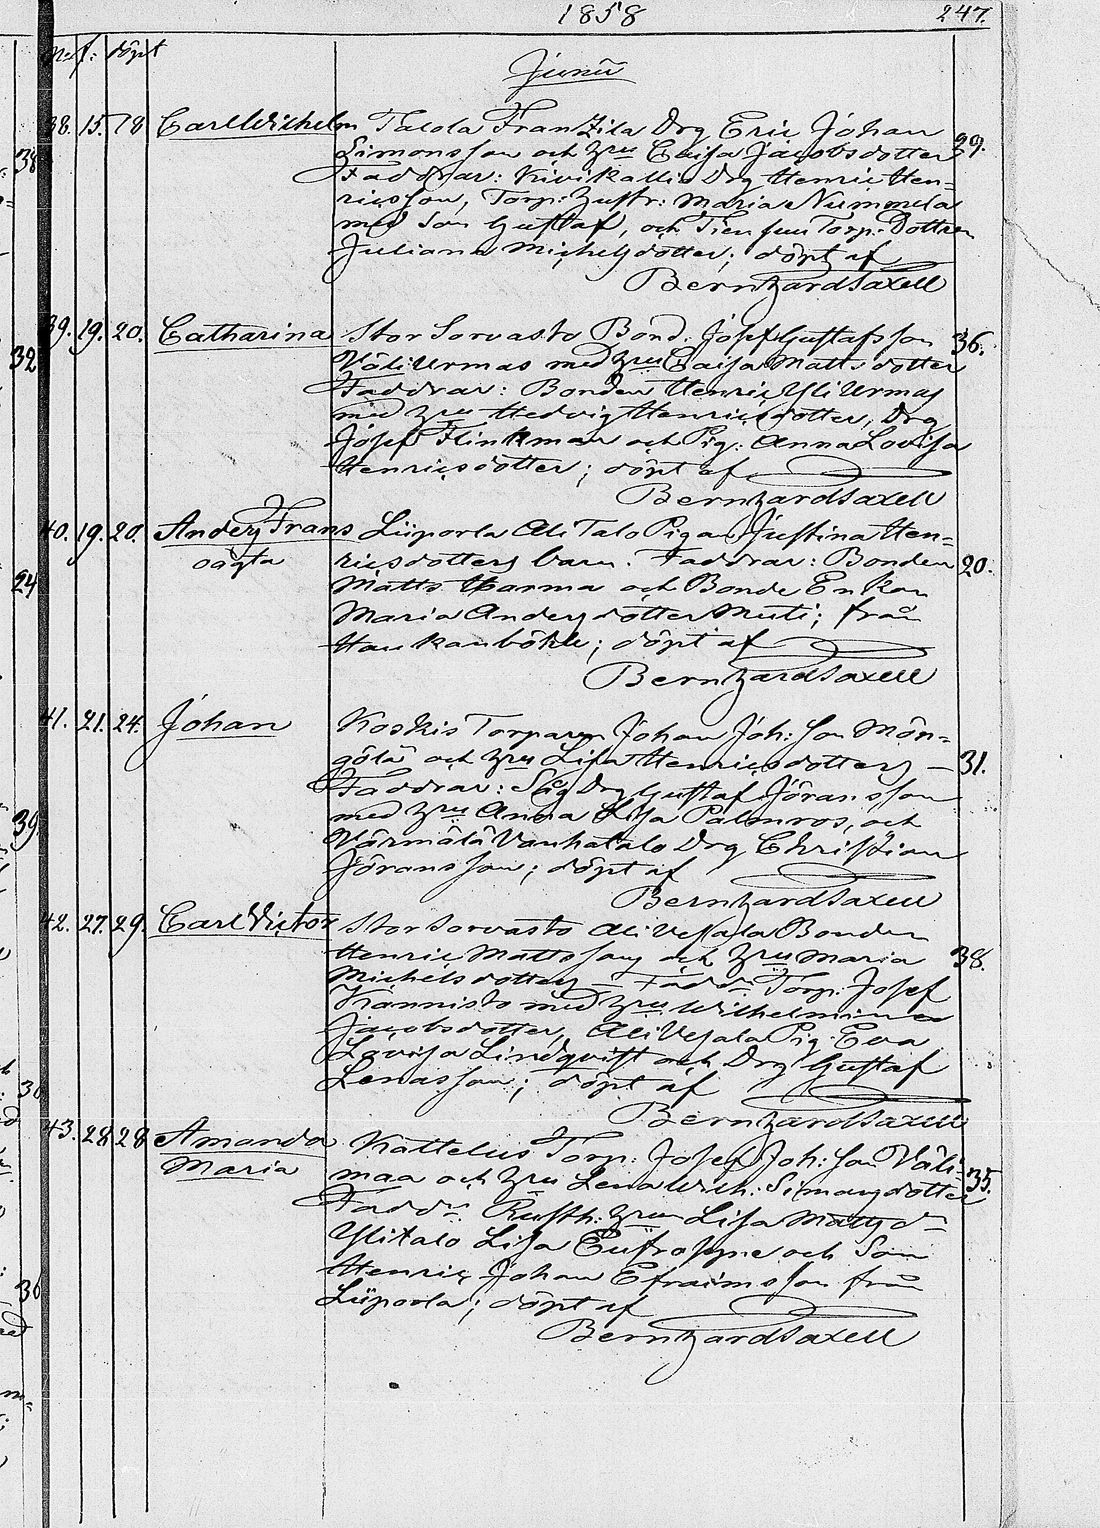 1858 247.
No f: döpt
Junii
38. 15. 18 Carl Wilhelm Talola Franzila Drg Eric Johan 29.
Simonsson och hru Caisa Jacobsdotter
Faddrar: Kivikallio Drg Henric Hen=
ricsson, Torp: hustr: Maria Nummela
med Son Gustaf, och Torp: Dottren
Juliana Michelsdotter; döpt af
Bernhard Saxell
39. 19. 20. Catharina Stor Sorvasto Bond. Josef Gustafsson 36.
Väliurmas med hru Caisa Mattsdotter
Faddrar: Bonden Henric Yliurmas
med hru Hedvig Henricsdotter, Drg
Josef Flinkman och Pig: Anna Lovisa
Henricsdotter; döpt af
Bernhard Saxell
40. 19. 20. Anders Frans Liiporla Ali Talo Pigan Justina Hen=
oägta ricsdotters barn. Faddrar: Bonden 20.
Matts Harma och Bonde Enkan
Maria Andersdotter Muti; från
Haukanböhle; döpt af
Bernhard Saxell
41. 21. 24. Johan Koskis Torparen Johan Joh: son Mön=
gölä och hru Lisa Henricsdotter — 31.
Faddrar: Säg Drg Gustaf Jöransson
med hru Anna Lisa Palmros, och
Vörmälä Vanhatalo Drg Christian
Jöransson; döpt af
Bernhard Saxell
42. 27. 29. Carl Victor Stor Sorvasto Ali Vesala Bonden
Henric Mattsson och hru Maria 38.
Michelsdotter — Faddr: Torp: Josef
Kannisto med hru Wilhelmina
Jacobsdotter, Ali Vesala Pig. Eva
Lovisa Lindqvist och Drg Gustaf
Lenasson; döpt af
Bernhard Saxell
43. 28 28 Amanda Kattelus Torp: Josef Joh: son Väli=
Maria maa och hru Lena Wilh: Simonsdotter 35.
Fadd: Rusth: hru Lisa Matts dr
Ylitalo Lisa Eufrosyne och Son
Henric Johan Efraimsson från
Liiporla; döpt af
Bernhard Saxell
38
32
24
39
30
36